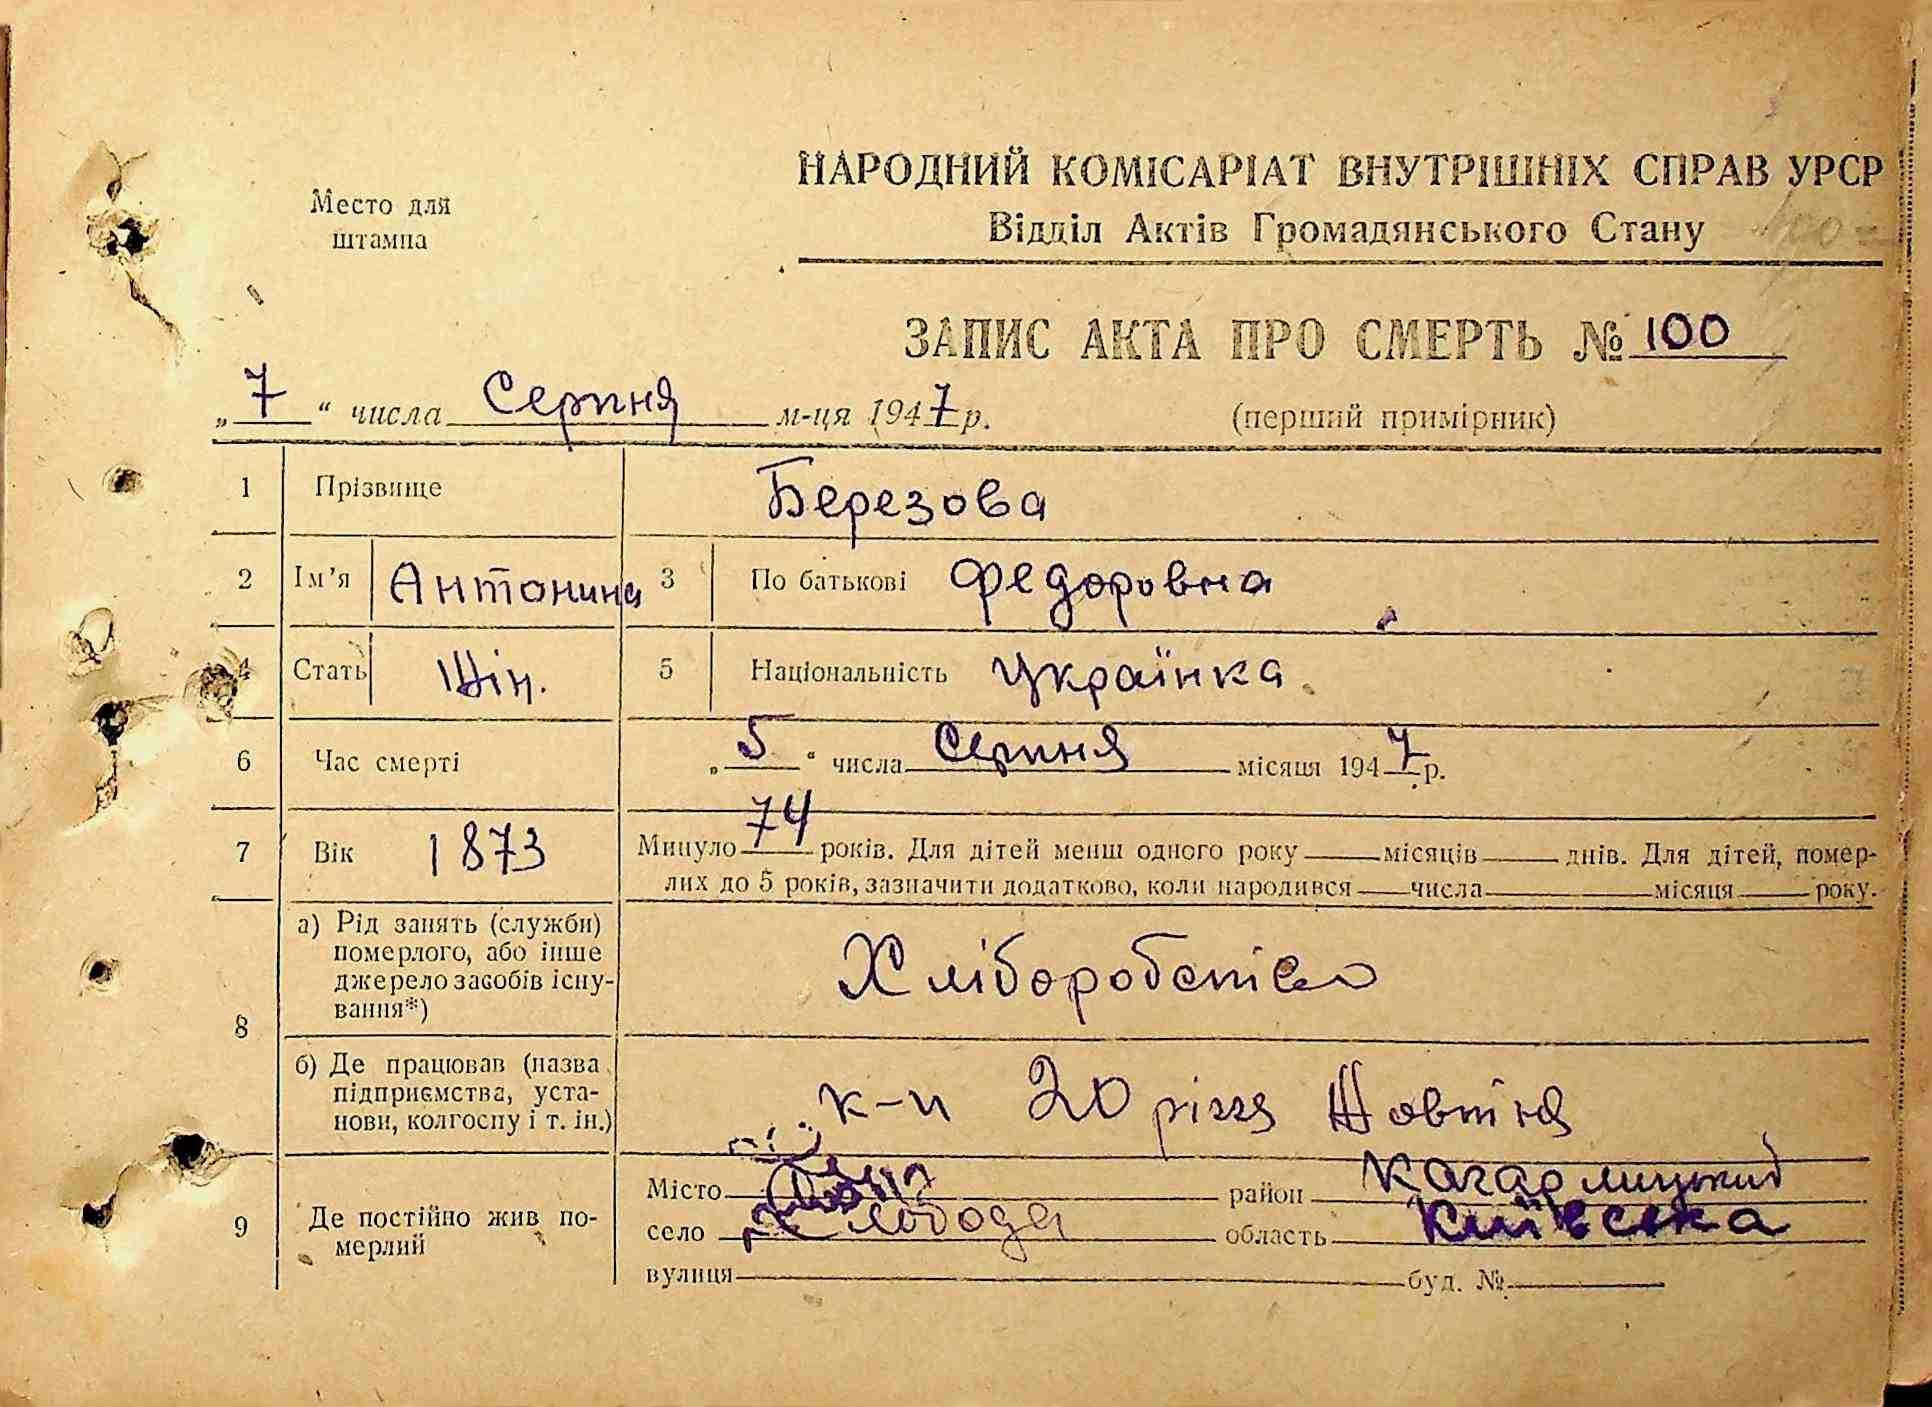 НАРОДНИЙ КОМІСАРІАТ ВНУТРІШНІХ СПРАВ УРСР
Место для
штампа
Відділ Актів Громадянського Стану
ЗАПИС АКТА ПРО СМЕРТЬ № 100
„ 7 “ числа Серпня м-ця 1947 р. (перший примірник)
1 Прізвище Березова
2 Ім’я Антонина 3 По батькові Федоровна
4 Стать Жін. 5 Національність Українка
6 Час смерті „ 5 “ числа Серпня місяця 1947 р.
7 Вік 1873 Минуло 74 років. Для дітей менш одного року місяців днів. Для дітей, помер-
лих до 5 років, зазначити додатково, коли народився числа місяця року.
8 а) Рід занять (служби)
померлого, або інше
джерело засобів існу-
вання*)
Хліборобство
б) Де працював (назва
підприємства, уста-
нови, колгоспу і т. ін.)
к-п 20 річчя Жовтня
9 Де постійно жив по-
мерлий
Місто район Кагарлицький
село Слобода область Київська
вулиця буд. №